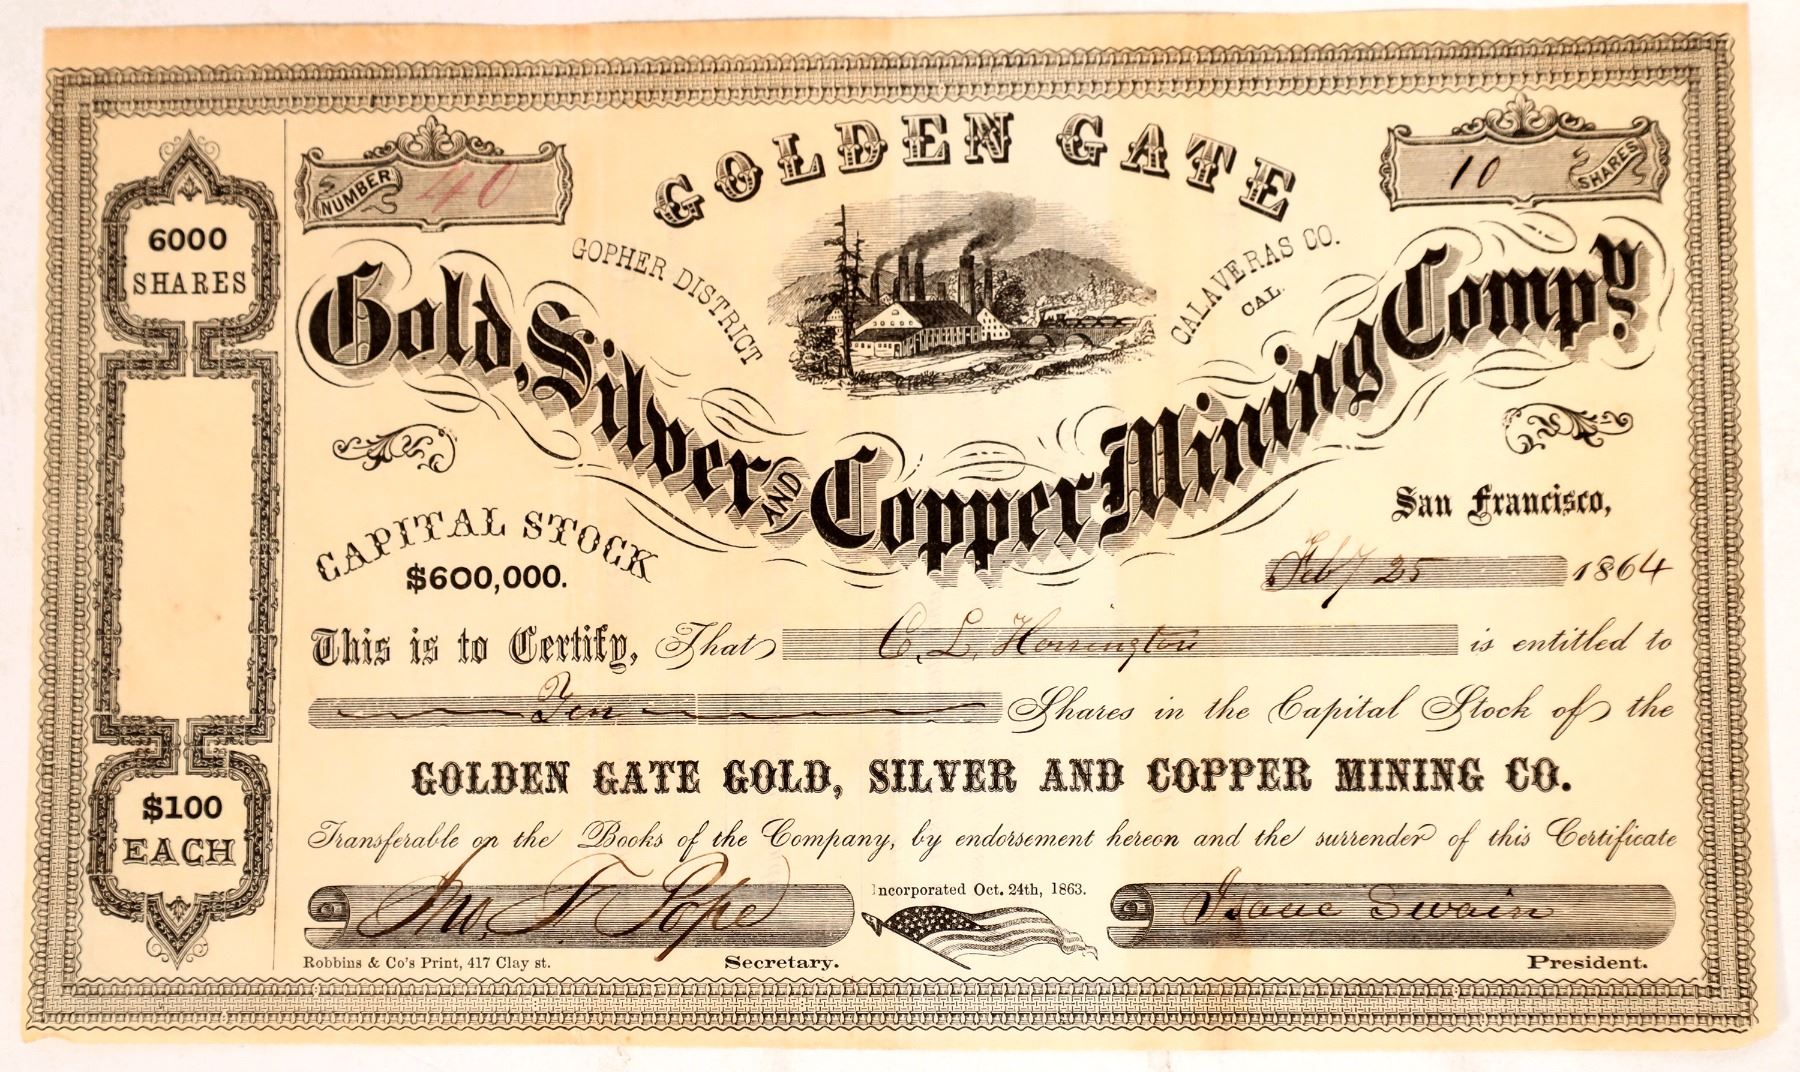 NUMBER 40
GOLDEN GATE
10 SHARES
6000
SHARES
GOPHER DISTRICT
CALAVERAS CO.
CAL.
Gold, Silver AND Copper Mining Comp'y.
San Francisco,
CAPITAL STOCK
$600,000.
Feb'y 25 1864
This is to Certify, That C. L. Horrington is entitled to
Ten Shares in the Capital Stock of the
GOLDEN GATE GOLD, SILVER AND COPPER MINING CO.
$100
EACH
Transferable on the Books of the Company, by endorsement hereon and the surrender of this Certificate
Incorporated Oct. 24th, 1863.
Jno. F. Pope
Isaac Swain
Robbins & Co's Print, 417 Clay st.
Secretary.
President.